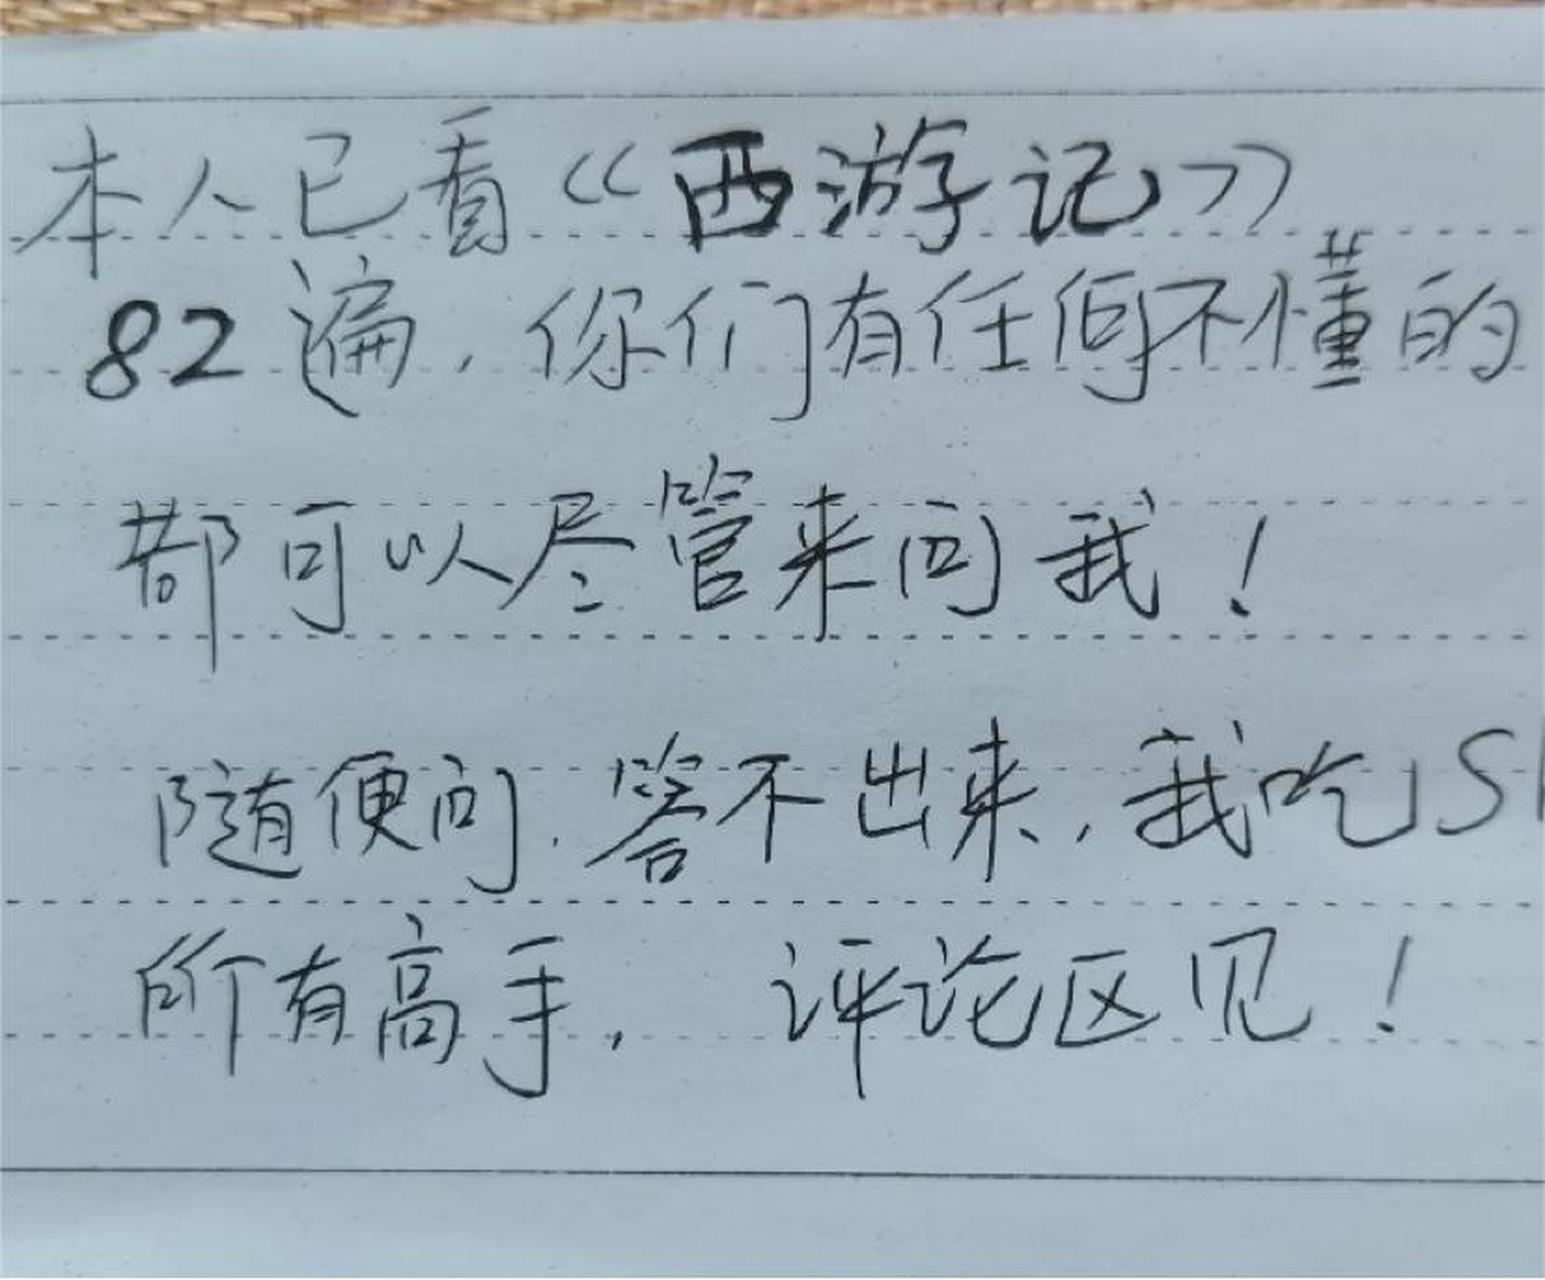 本人已看《西游记》
82遍，你们有任何不懂的
都可以尽管来问我！
随便问，答不出来，我吃S
所有高手，评论区见！